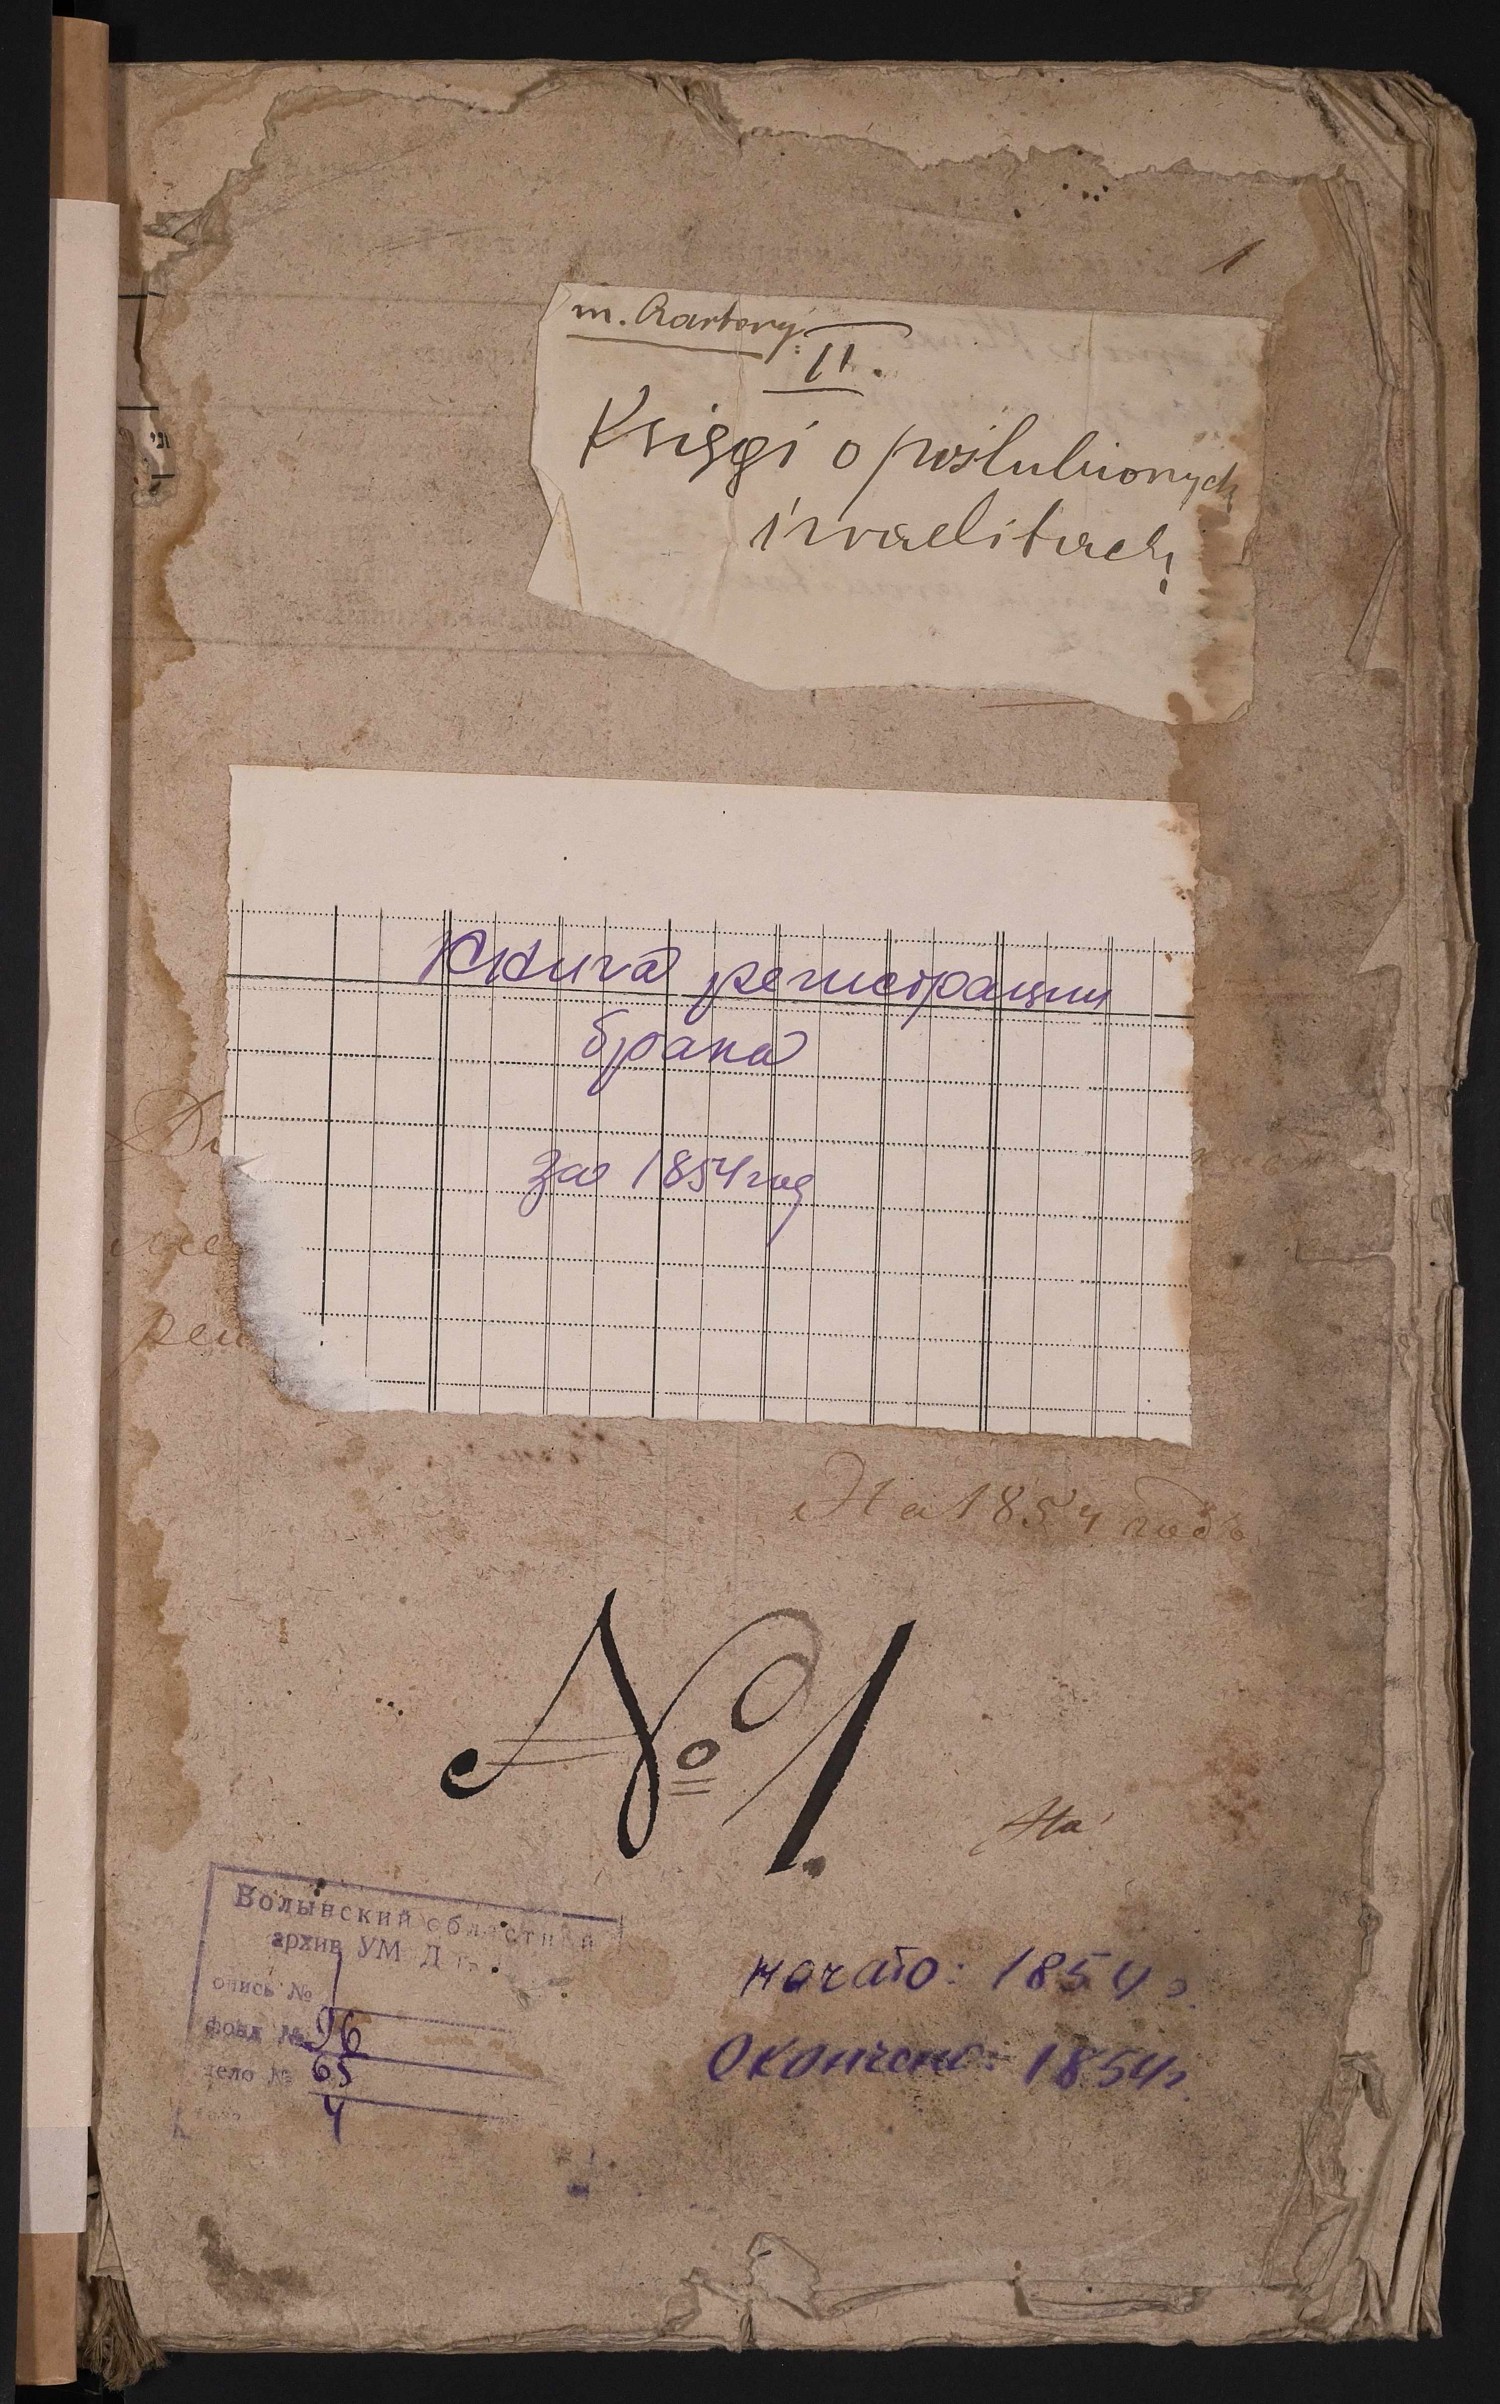 1
m.
II.
Księgi o poślubionych
izraelitach
Книга регистрации
брака
за 1854 год
На 1854 годъ
№ 1.
На
Волынский областной
архив УМ Д
опись №
фонд № 96
дело № 65
4
начато: 1854 г.
Окончено: 1854 г.